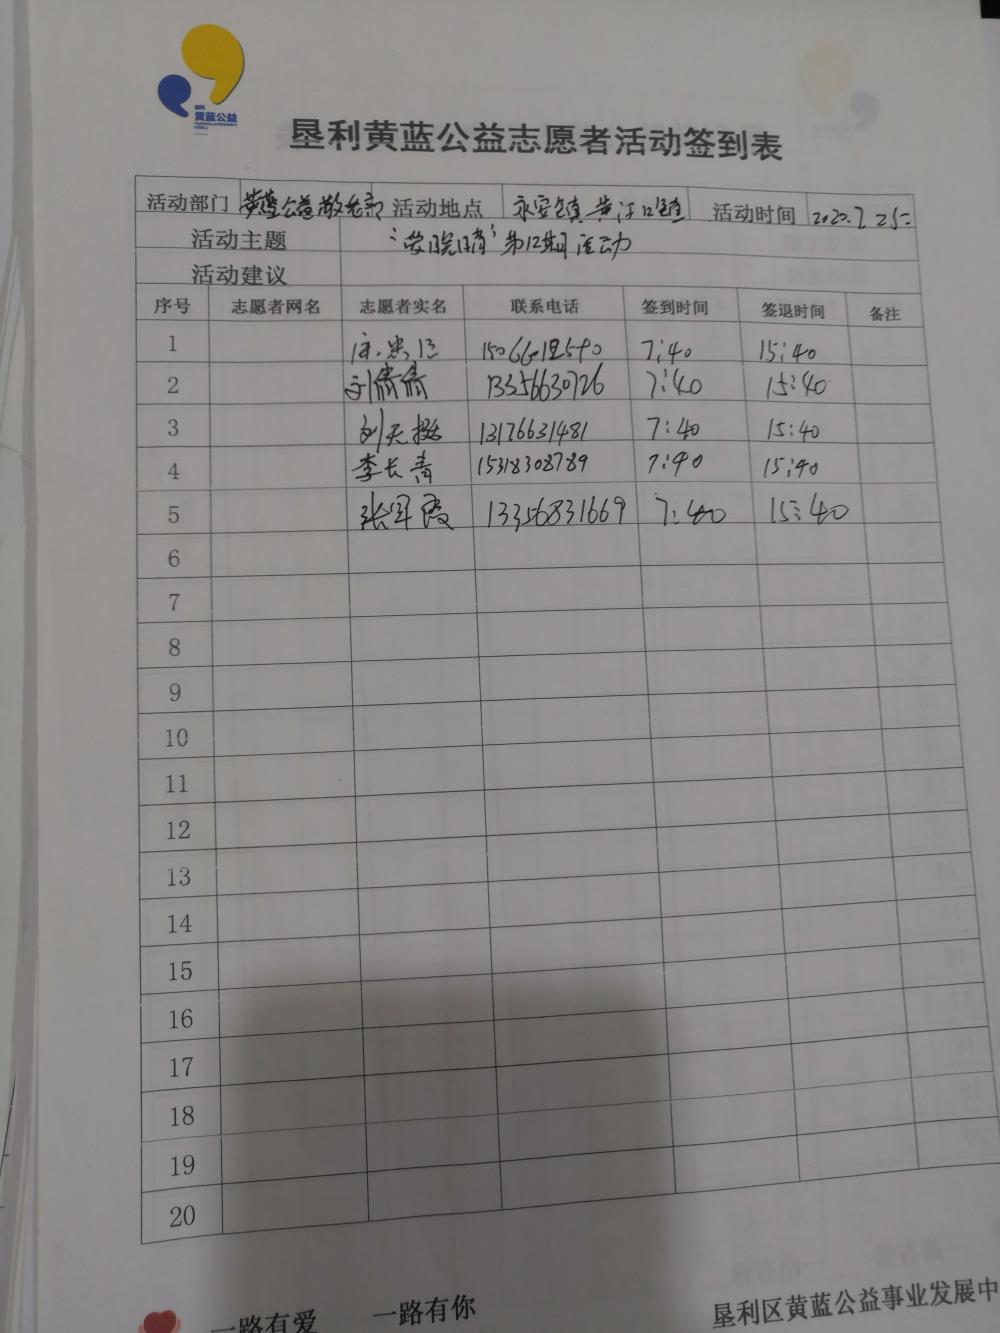 黄蓝公益
垦利黄蓝公益志愿者活动签到表
活动部门 黄蓝公益敬老部 活动地点 永安镇 黄河口镇 活动时间
活动主题 第12期活动
活动建议
序号 志愿者网名 志愿者实名 联系电话 签到时间 签退时间 备注
1 7:40 15:40
2 刘倩倩 13356630726 7:40 15:40
3 刘天挺 13176631481 7:40 15:40
4 李长青 15318308789 7:40 15:40
5 张军霞 13356831669 7:40 15:40
6
7
8
9
10
11
12
13
14
15
16
17
18
19
20
一路有爱 一路有你
垦利区黄蓝公益事业发展中